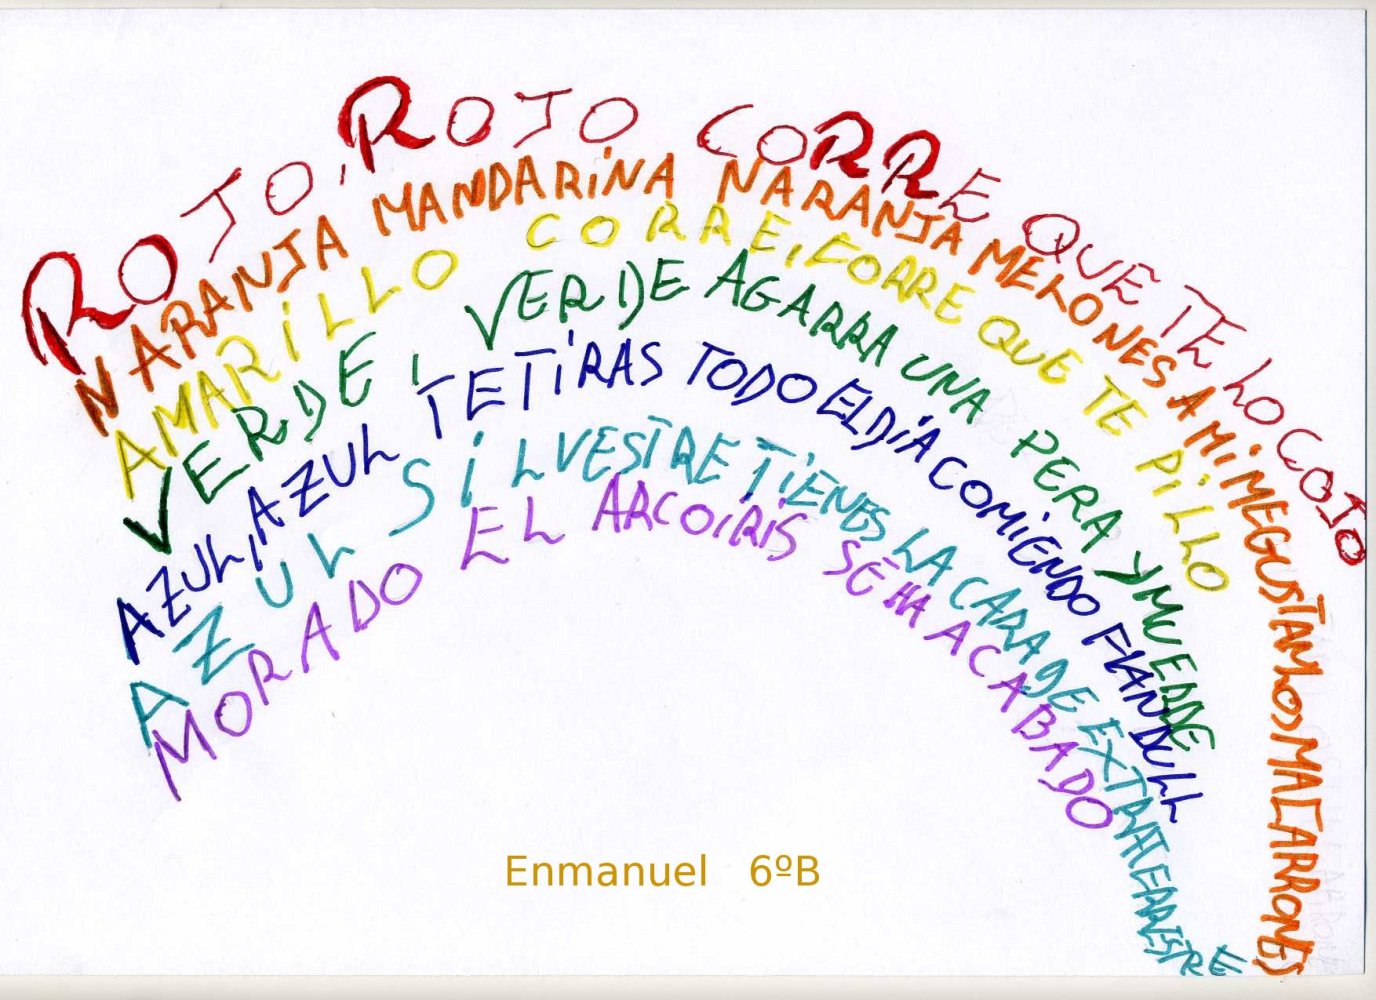 ROJO, ROJO CORRE QUE TE LO COJO
NARANJA MANDARINA NARANJA MELONES A MI ME GUSTAN LOS MACARRONES
AMARILLO CORRE, CORRE QUE TE PILLO
VERDE, VERDE AGARRA UNA PERA Y MUERDE
AZUL, AZUL TE TIRAS TODO EL DÍA COMIENDO FLAN DULL
AZUL SILVESTRE TIENES LA CARA DE EXTRATERRESTRE
MORADO EL ARCOIRIS SE HA ACABADO
Enmanuel 6ºB